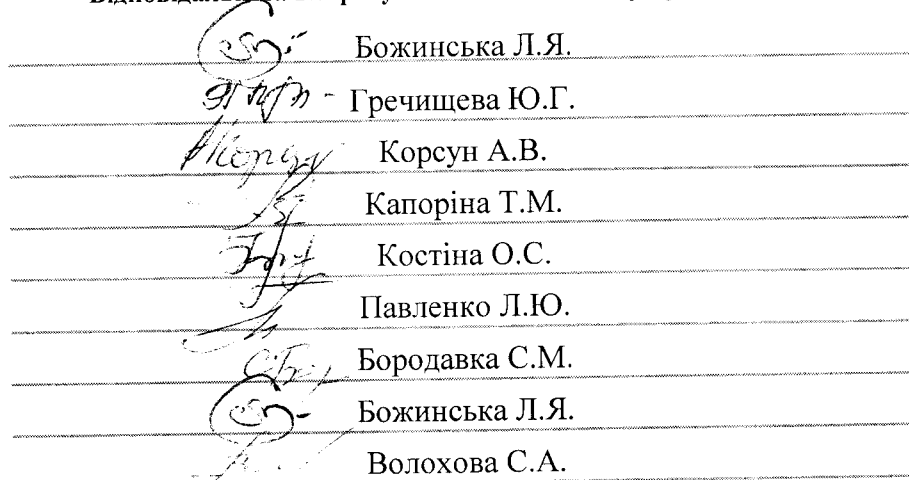 Божинська Л.Я.
Гречищева Ю.Г.
Корсун А.В.
Капоріна Т.М.
Костіна О.С.
Павленко Л.Ю.
Бородавка С.М.
Божинська Л.Я.
Волохова С.А.